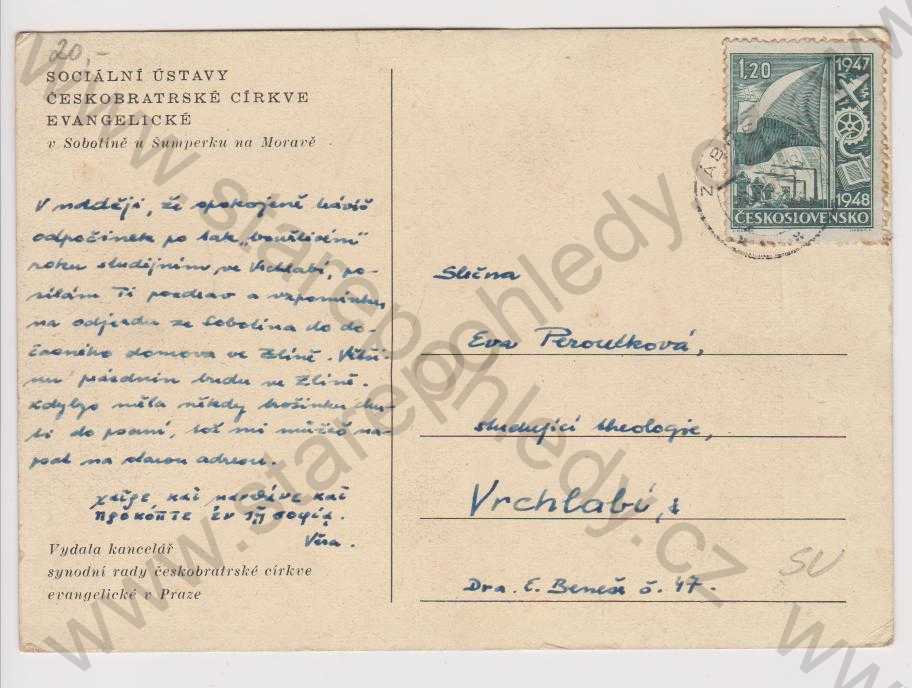 20,-
SOCIÁLNÍ ÚSTAVY
ČESKOBRATRSKÉ CÍRKVE
EVANGELICKÉ
v Sobotíně u Šumperku na Moravě
V naději, že spokojeně trávíš
odpočinek po tak „bouřlivém"
roku studijním ve Vrchlabí, po-
sílám Ti pozdrav a vzpomínku
na odjezdu ze Sobotína do do-
časného domova ve Zlíně. Větši-
nu prázdnin budu ve Zlíně.
Kdybys měla někdy trošinku chu-
ti do psaní, tož mi můžeš na-
psat na starou adresu.
χαῖρε καὶ καὶ
πρόκοπτε ἐν τῇ σοφίᾳ.
Věra.
Vydala kancelář
synodní rady českobratrské církve
evangelické v Praze
1,20
1947
1948
ČESKOSLOVENSKO
ZÁB
Slečna
Eva Peroutková,
studující theologie,
Vrchlabí,
Dra. E. Beneše č. 47.
SU
www.starepohledy.cz
www.starepohledy.cz